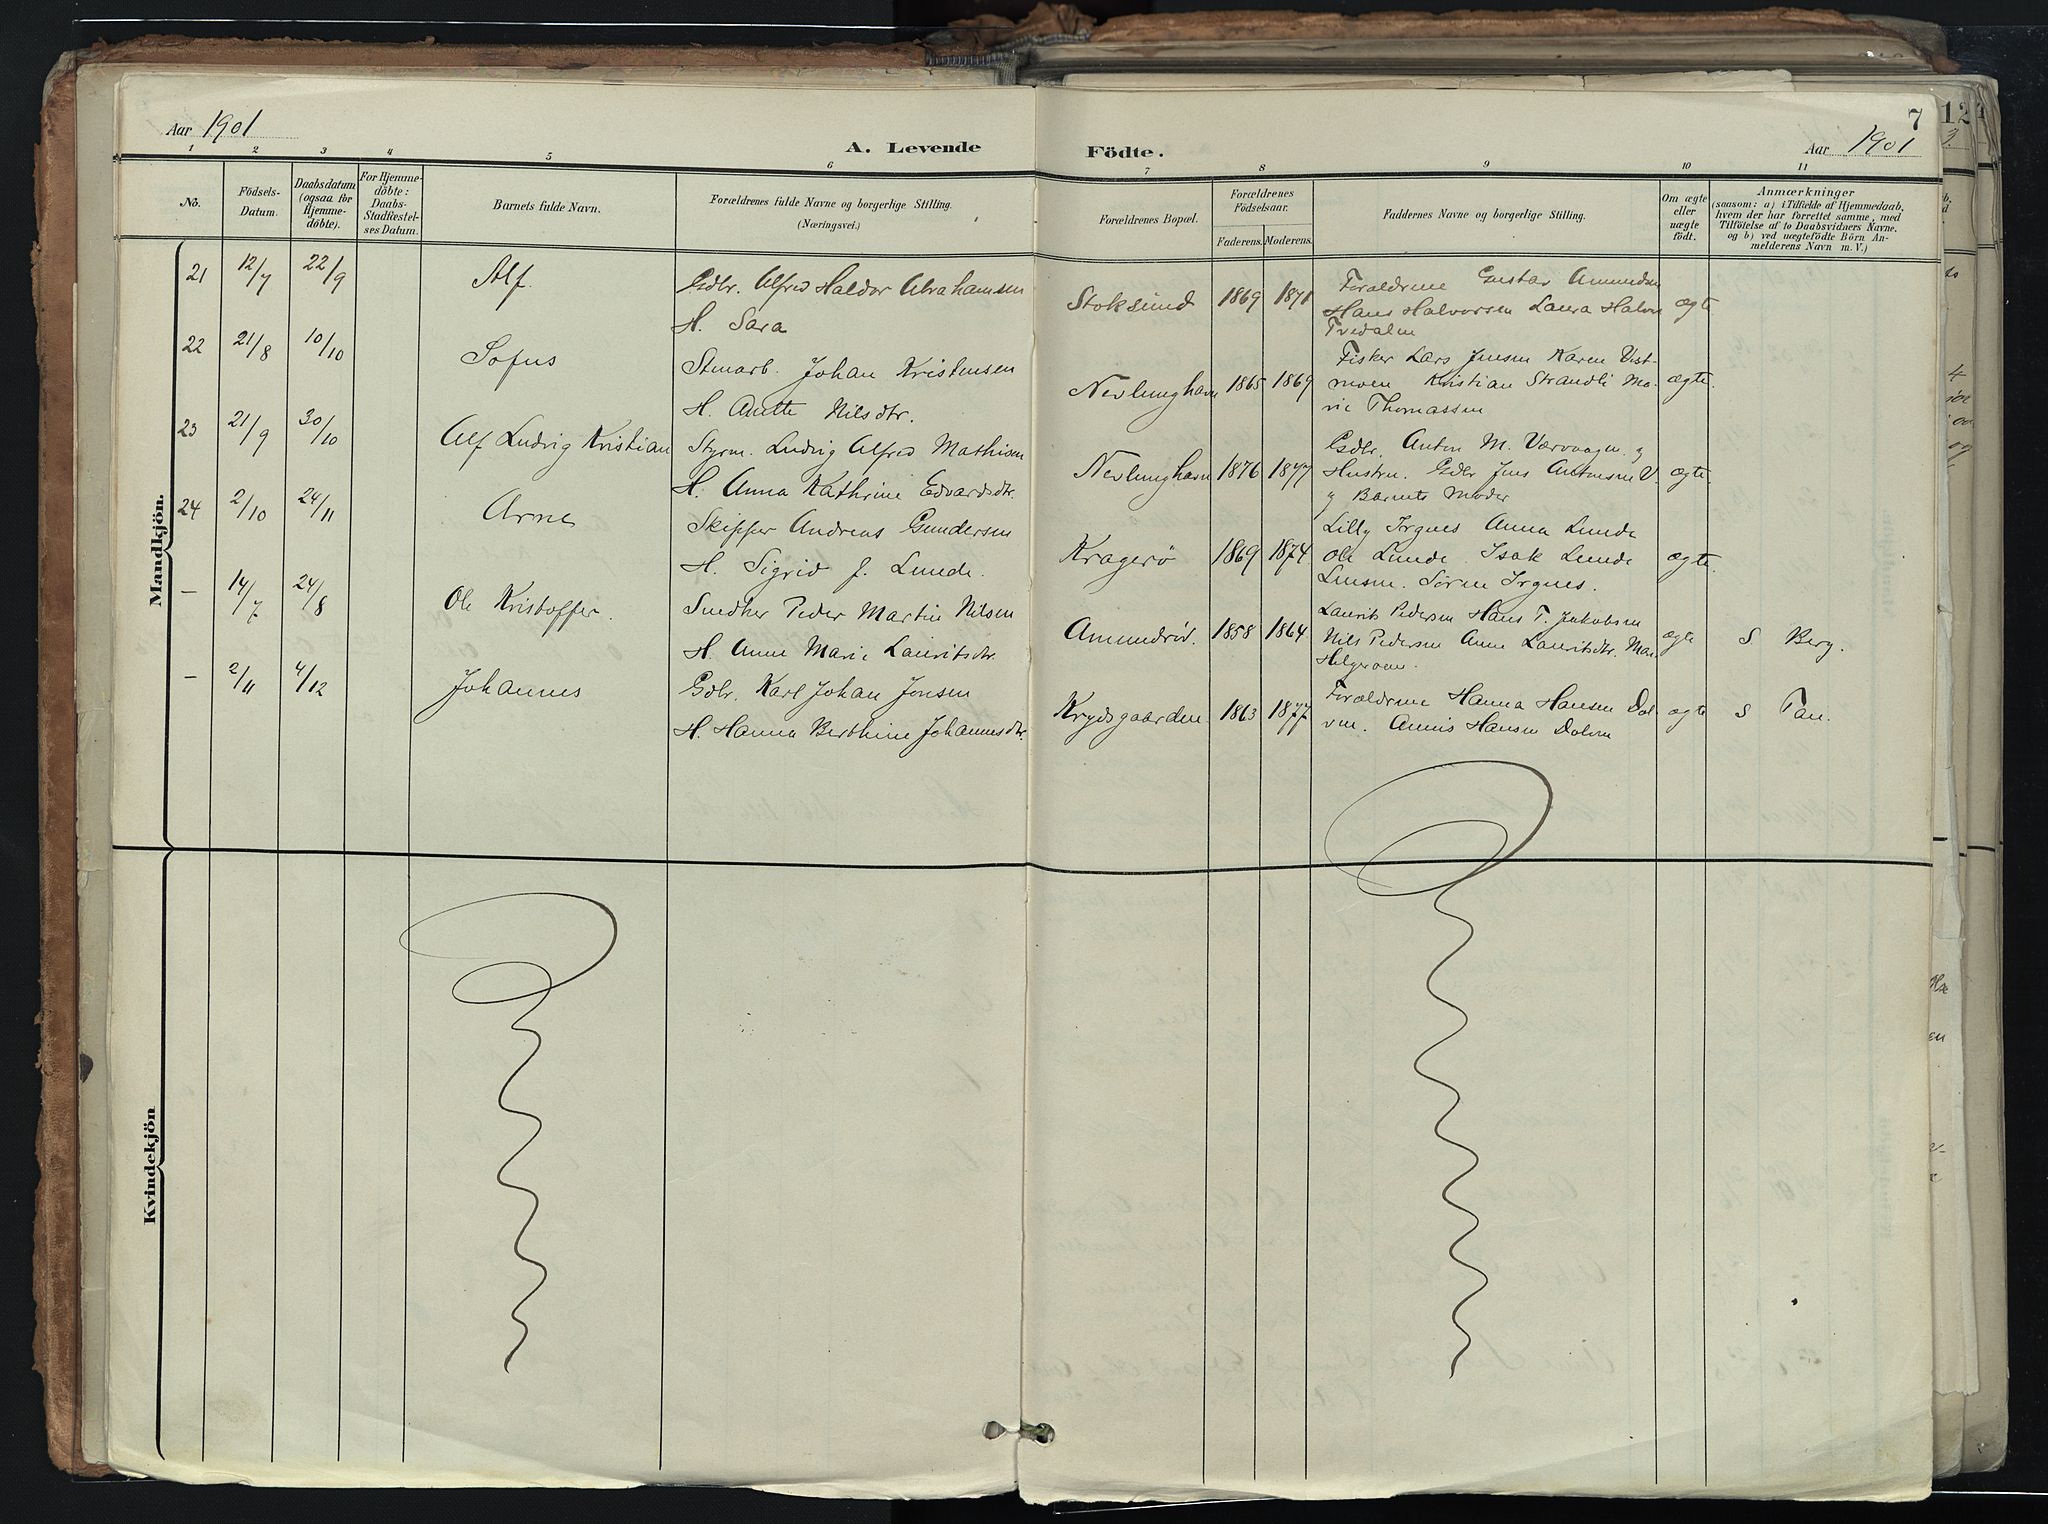 Aar 1901
A. Levende
Födte.
7
Aar 1901
1 2 3 4 5 6 7 8 9 10 11
No.
Födsels-
Datum.
Daabsdatum
(ogsaa for
Hjemme-
döbte).
For Hjemme-
döbte:
Daabs-
Stadfæstel-
ses Datum.
Barnets fulde Navn.
Forældrenes fulde Navne og borgerlige Stilling.
(Næringsvei.)
Forældrenes Bopæl.
Forældrenes
Födselsaar.
Faderens. Moderens.
Faddernes Navne og borgerlige Stilling.
Om ægte
eller
uægte
födt.
Anmærkninger
(saasom: a) i Tilfælde af Hjemmedaab,
hvem der har forrettet samme, med
Tilföielse af to Daabsvidners Navne.
og b) ved uægtefödte Börn An-
melderens Navn m. V.)
Mandkjön.
21 12/7 22/9 Alf. Gdbr. Alfred Haldor Abrahamsen
H. Sara
Stoksund 1869 1871
Forældrene Gustav Amundsen
Hans Halvorsen Laura Halvor
Tvedalen
ægte
22 21/8 10/10 Sofus Stenarb. Johan Kristensen
H. Anette Nilsdtr.
Nevlunghavn 1865 1869
Fisker Lars Jensen Karen Vest-
moen Kristian Strandli Ma-
rie Thomassen
ægte.
23 21/9 30/10 Alf Ludvig Kristian Styrm. Ludvig Alfred Mathisen
H. Anna Kathrine Edvardsdtr.
Nevlunghavn 1876 1877
Gdbr. Anton M. Værvaagen. og
Hustru. Gdbr Jens Antonsen V.
og Barnets Moder
ægte.
24 2/10 24/11 Arne Skipper Andreas Gundersen
H. Sigrid f. Lunde.
Kragerø 1869 1874
Lilly Irgens Anna Lunde
Ole Lunde. Isak Lunde
Søren Irgens.
ægte.
- 14/7 24/8 Ole Kristoffer. Snedker Peder Martin Nilsen
H. Anne Marie Lauritsdtr.
Amundrød. 1858 1864
Laurits Pedersen Hans T. Jakobsen
Nils Pedersen Anne Lauritsdtr. Mar-
Helgeroen.
ægte
S Berg.
- 2/11 4/12 Johannes Gdbr. Karl Johan Jensen
H. Hanna Berthine Johannesdtr.
Krydsgaarden. 1863 1877
Forældrene Hanna Hansen Dol-
ven. Annis Hansen Dolven
ægte
S Tan.
Kvindekjön
12